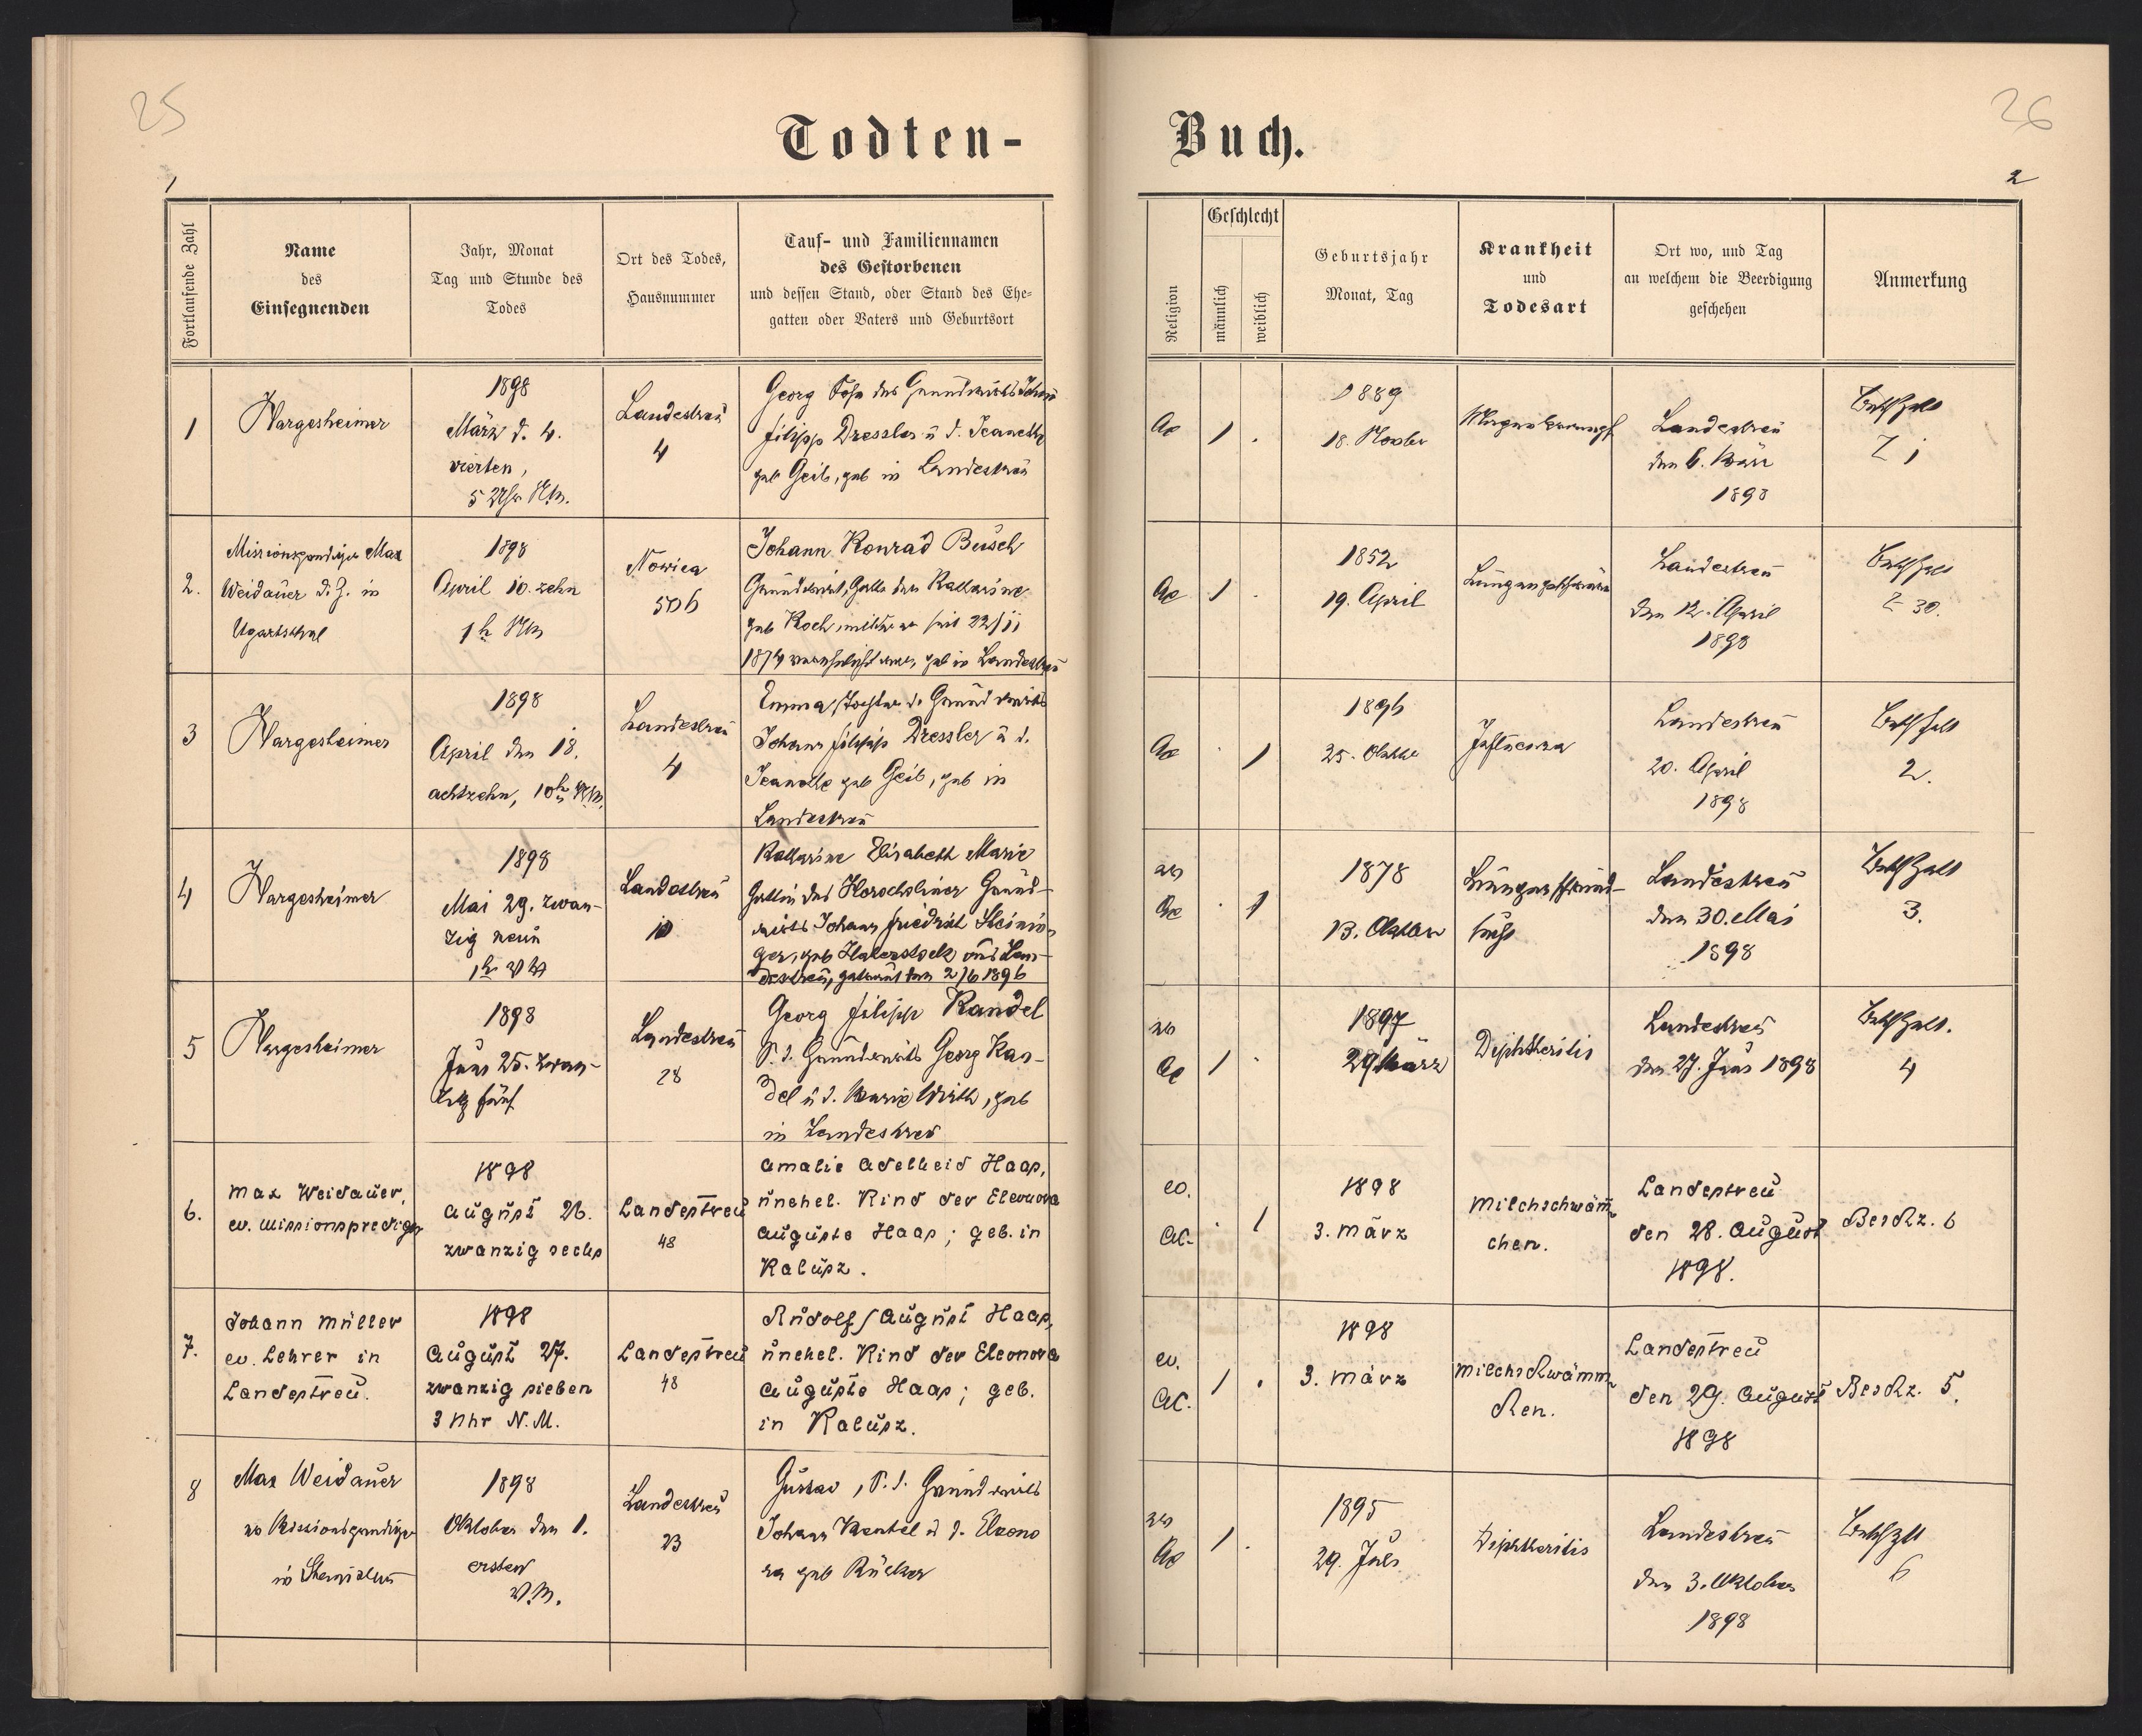 25
26
Todten-
Buch.
1
2
Fortlaufende Zahl
Name
des
Einsegnenden
Jahr, Monat
Tag und Stunde des
Todes
Ort des Todes,
Hausnummer
Tauf- und Familiennamen
des Gestorbenen
und dessen Stand, oder Stand des Ehe-
gatten oder Vaters und Geburtsort
Religion
Geschlecht
männlich
weiblich
Geburtsjahr
Monat, Tag
Krankheit
und
Todesart
Ort wo, und Tag
an welchem die Beerdigung
geschehen
Anmerkung
1
Hargesheimer
1898
März d. 4.
vierten,
5 Uhr NM.
Landestreu
4
Georg Sohn des Grundwirts Johann
Filipp Dressler u d. Jeanette
geb Geib, geb in Landestreu
AC
1 .
1889
18. Novber
Landestreu
den 6. März
1898
Z 1
2.
Missionsprediger Max
Weidauer d. Z. in
Ugartsthal
1898
April 10. zehn
1h NM
Nowica
506
Johann Konrad Busch
Grundwirt, Gatte der Katharine
geb Koch, mit der er seit 22/11
1874 verehelicht war, geb in Landestreu
AC
1 .
1852
19. April
Landestreu
den 12. April
1898
Z 30.
3
Hargesheimer
1898
April den 18.
achtzehn, 10h NM.
Landestreu
4
Emma, Tochter d. Grundwirts
Johann Filipp Dressler u d.
Jeanette geb Geib, geb in
Landestreu
AC
. 1
1896
25. Oktbr
Influenza
Landestreu
20. April
1898
2.
4
Hargesheimer
1898
Mai 29. zwan-
zig neun
1h VM
Landestreu
10
Katharine Elisabeth Marie
Gattin des Grund-
wirts Johann Friedrich Steinin-
ger, geb Haberstock aus Lan-
destreu, getraut den 2/6 1896
ev
AC
. 1
1878
13. Oktober
Lungenschwind-
sucht
Landestreu
den 30. Mai
1898
3.
5
Hargesheimer
1898
Juni 25. zwan-
zig fünf
Landestreu
28
Georg Filipp Kandel
S. d. Grundwirts Georg Kan-
del u d. Marie Wirth, geb
in Landestreu
ev
AC
1 .
1897
29 März
Diphtheritis
Landestreu
den 27. Juni 1898
4
6.
Max Weidauer,
ev. Missionsprediger
1898
August 26.
zwanzig sechs
Landestreu
48
Amalie Adelheid Haas,
unehel. Kind der Eleonora
Auguste Haas; geb. in
Kalusz.
ev.
AC.
. 1
1898
3. März
Milchschwämm-
chen.
Landestreu
den 28. August
1898.
Beschz. 6
7.
Johann Müller
ev. Lehrer in
Landestreu.
1898
August 27.
zwanzig sieben
3 Uhr N.M.
Landestreu
48
Rudolf August Haas,
unehel. Kind der Eleonora
Auguste Haas; geb.
in Kalusz.
ev.
AC.
1 .
1898
3. März
Milchschwämm-
chen.
Landestreu
den 29. August
1898
Beschz. 5.
8
Max Weidauer
ev Missionsprediger
in Stanislau
1898
Oktober den 1.
ersten
V.M.
Landestreu
23
Gustav, S. d. Grundwirts
Johann u d. Eleono
ra geb Rücker
ev
AC
1 .
1895
29. Juli
Diphtheritis
Landestreu
den 3. Oktober
1898
6